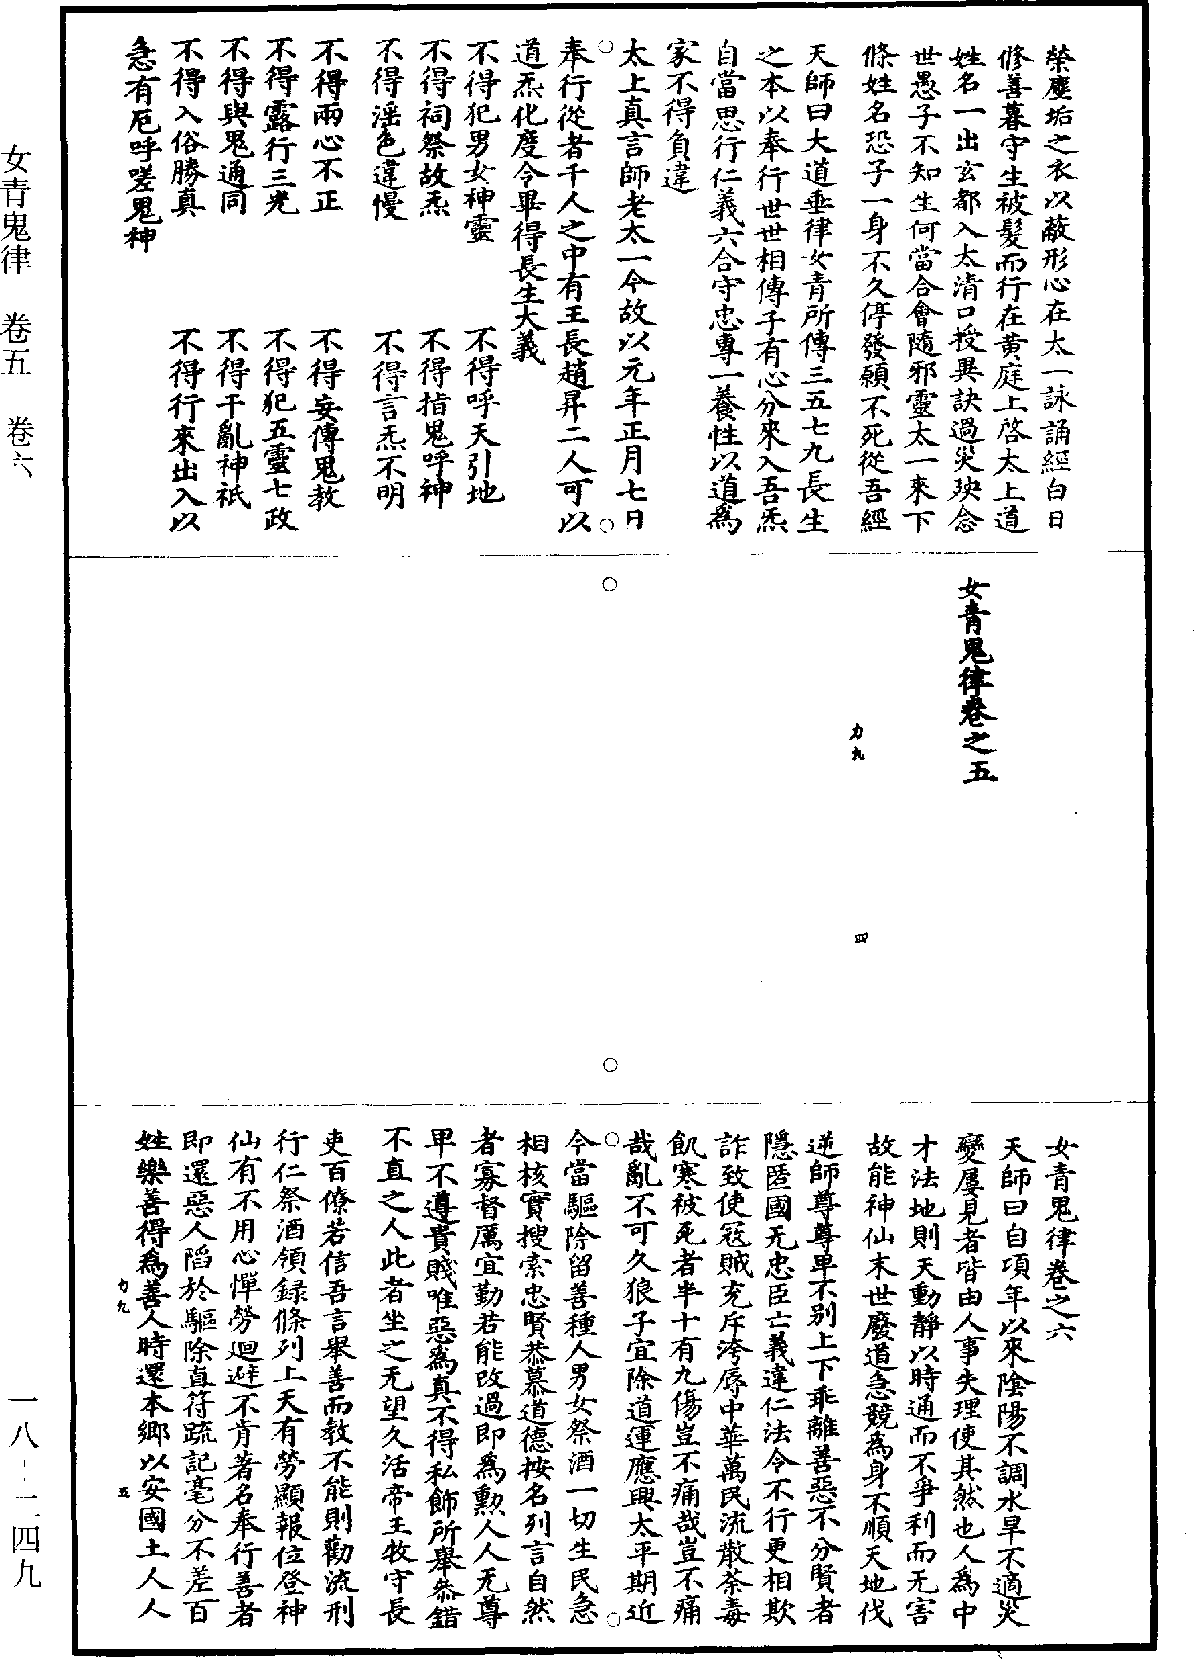 榮塵垢之衣以蔽形心在太一詠誦經白日
修善暮守生被髮而行在黄庭上啓太上道
姓名一出玄都入太清口授異訣過災殃念
世愚子不知生何當合會隨邪靈太一來下
條姓名恐子一身不久停發願不死從吾經
天師曰大道垂律女青所傳三五七九長生
之本以奉行世世相傳子有心分來入吾炁
自當思行仁義六合守忠專一養性以道爲
家不得負違
太上真言師老太一今故以元年正月七日
奉行從者千人之中有王長趙昇二人可以
道炁化度今畢得長生大義
不得犯男女神靈　不得呼天引地
不得祠祭故炁　不得指鬼呼神
不得滛色違慢　不得言炁不明
不得兩心不正　不得妄傳鬼教
不得露行三光　不得犯五靈七政
不得與鬼通同　不得干亂神祇
不得入俗勝真　不得行來出入以
急有厄呼嗟鬼神
女青鬼律卷之五
力九　四
女青鬼律卷之六
天師曰自頃年以來陰陽不調水旱不適災
變屢見者皆由人事失理使其然也人爲中
才法地則天動靜以時通而不爭利而无害
故能神仙末世廢道急競爲身不順天地伐
逆師尊尊卑不别上下乖離善惡不分賢者
隱匿國无忠臣亡義違仁法令不行更相欺
詐致使寇賊充斥洿辱中華萬民流散荼毒
飢寒被死者半十有九傷豈不痛哉豈不痛
哉亂不可久狼子宜除道運應興太平期近
今當驅除留善種人男女祭酒一切生民急
相核實搜索忠賢恭慕道德按名列言自然
者寡督厲宜勤若能改過即爲勳人人无尊
卑不遵貴賤唯惡爲真不得私飾所舉恭錯
不直之人此者坐之无望久活帝王牧守長
吏百僚若信吾言舉善而教不能則勸流刑
行仁祭酒領録條列上天有勞顯報位登神
仙有不用心憚勞迴避不肯著名奉行善者
即還惡人䧟於驅除直符疏記毫分不差百
姓樂善得爲善人時還本鄉以安國土人人
力九　五
女青鬼律　卷五　卷六
一八-二四九